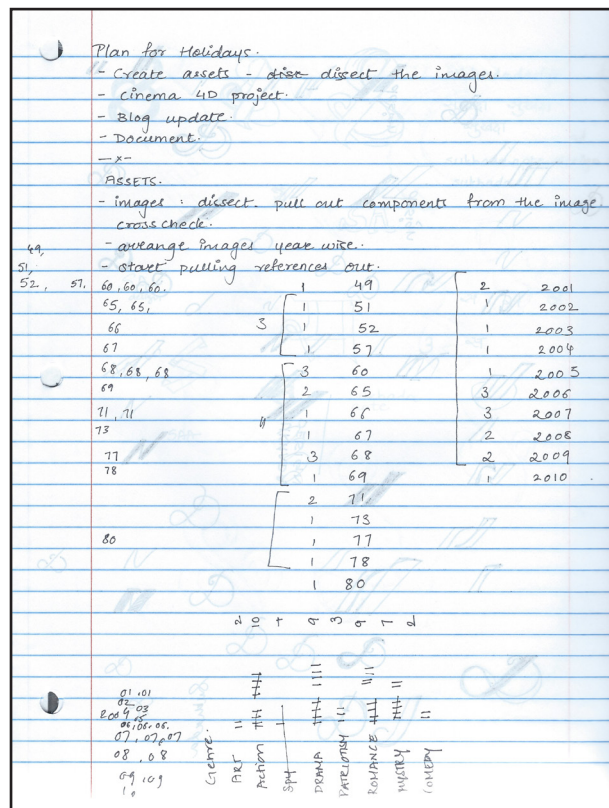 Plan for Holidays.
- Create assets - disc dissect the images.
- Cinema 4D project.
- Blog update.
- Document.
—x—
ASSETS.
- images : dissect. pull out components from the image.
cross check.
- arrange images year wise.
- start pulling references out.
49,
51,
52, 57. 60, 60, 60.
65, 65,
66
67
68, 68, 68
69
71, 71
73
77
78
80
1 49
3
1 51
1 52
1 57
11
3 60
2 65
1 66
1 67
3 68
1 69
2 71
1 73
1 77
1 78
1 80
2 2001
1 2002
1 2003
1 2004
1 2005
3 2006
3 2007
2 2008
2 2009
1 2010
01, 01
02
03
2004
05
06, 06, 06.
07, 07, 07
08, 08
09, 09
10
Genre.
ART || 2
Action 10
Spy
DRAMA 9
PATRIOTISM ||| 3
ROMANCE 9
MYSTRY 7
COMEDY || 2